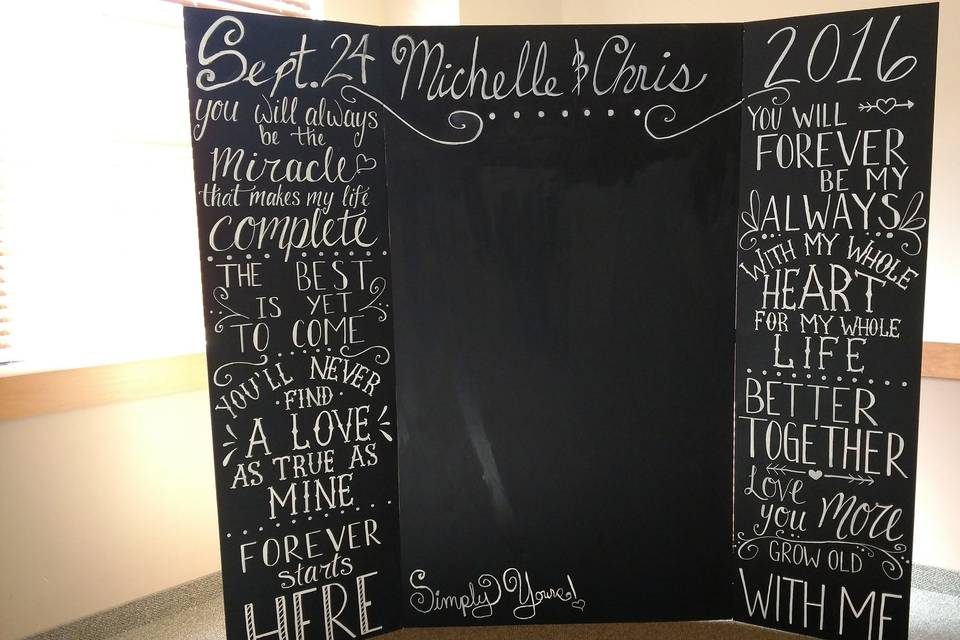 Sept. 24
you will always
be the
miracle
that makes my life
complete
THE BEST
IS YET
TO COME
YOU'LL NEVER
FIND
A LOVE
AS TRUE AS
MINE
FOREVER
starts
HERE
Michelle & Chris
Simply Yours!
2016
YOU WILL
FOREVER
BE MY
ALWAYS
WITH MY WHOLE
HEART
FOR MY WHOLE
LIFE
BETTER
TOGETHER
Love
you More
GROW OLD
WITH ME